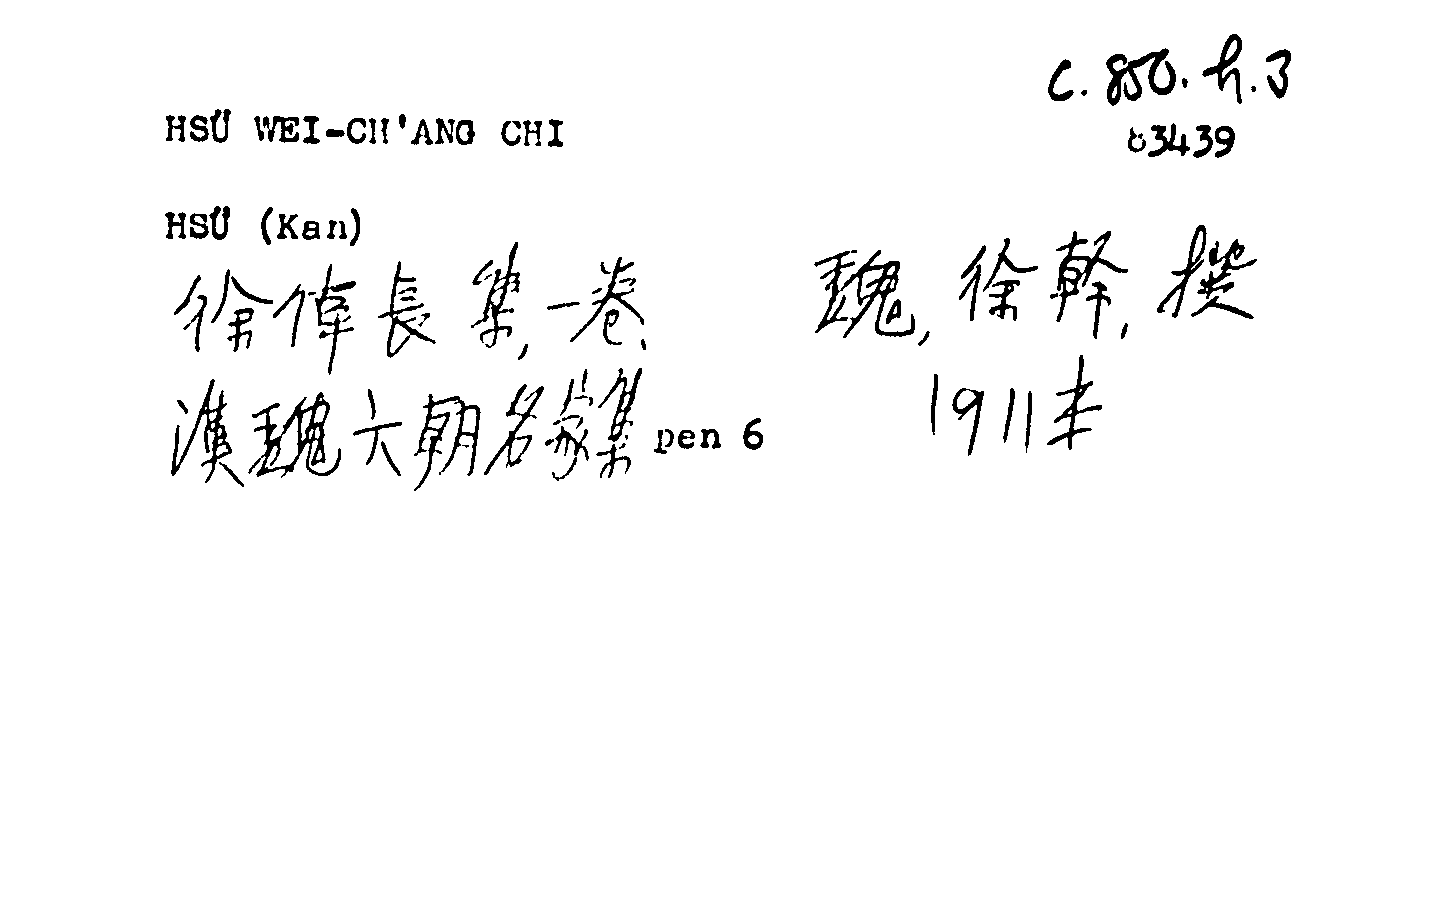 C. 850. h. 3
HSÜ WEI-CH'ANG CHI
83439
HSÜ (Kan)
徐偉長集,一卷、 魏,徐幹,撰
漢魏六朝名家集 pen 6 1911年